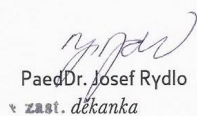 PaedDr. Josef Rydlo
v zast. děkanka